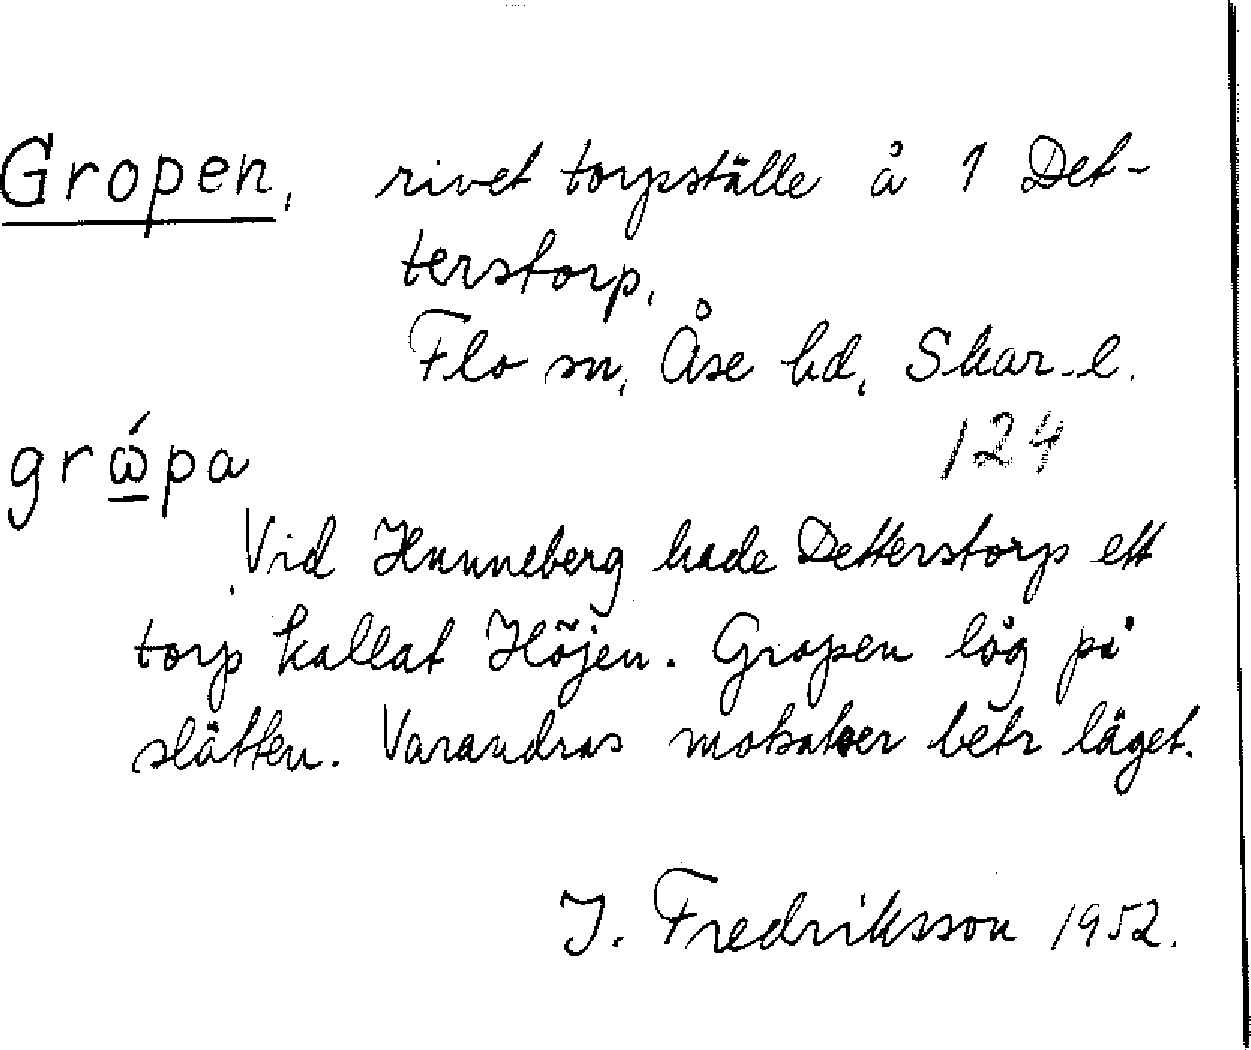 Gropen, rivet torpställe å 1 Det-
terstorp,
Flo sn, Åse hd, Skar. l.
124
grώ̲pa
Vid Hunneberg hade Detterstorp ett
torp kallat Höjen. Gropen låg på
slätten. Varandras motsatser betr läget.
I. Fredriksson 1952.